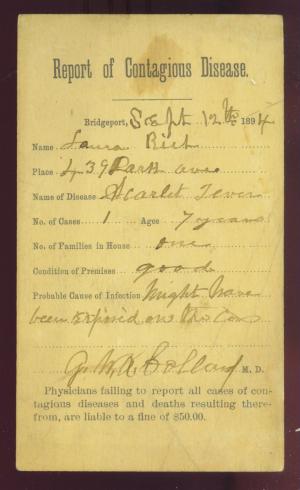 Report of Contagious Disease.
Bridgeport, Sept 12th 1894
Name Laura
Place 439 Park ave
Name of Disease Scarlet Fever
No. of Cases 1 Ages 7 years
No. of Families in House one
Condition of Premises good
Probable Cause of Infection Might have
been exposed on the cars
M. D.
Physicians failing to report all cases of con-
tagious diseases and deaths resulting there-
from, are liable to a fine of $50.00.